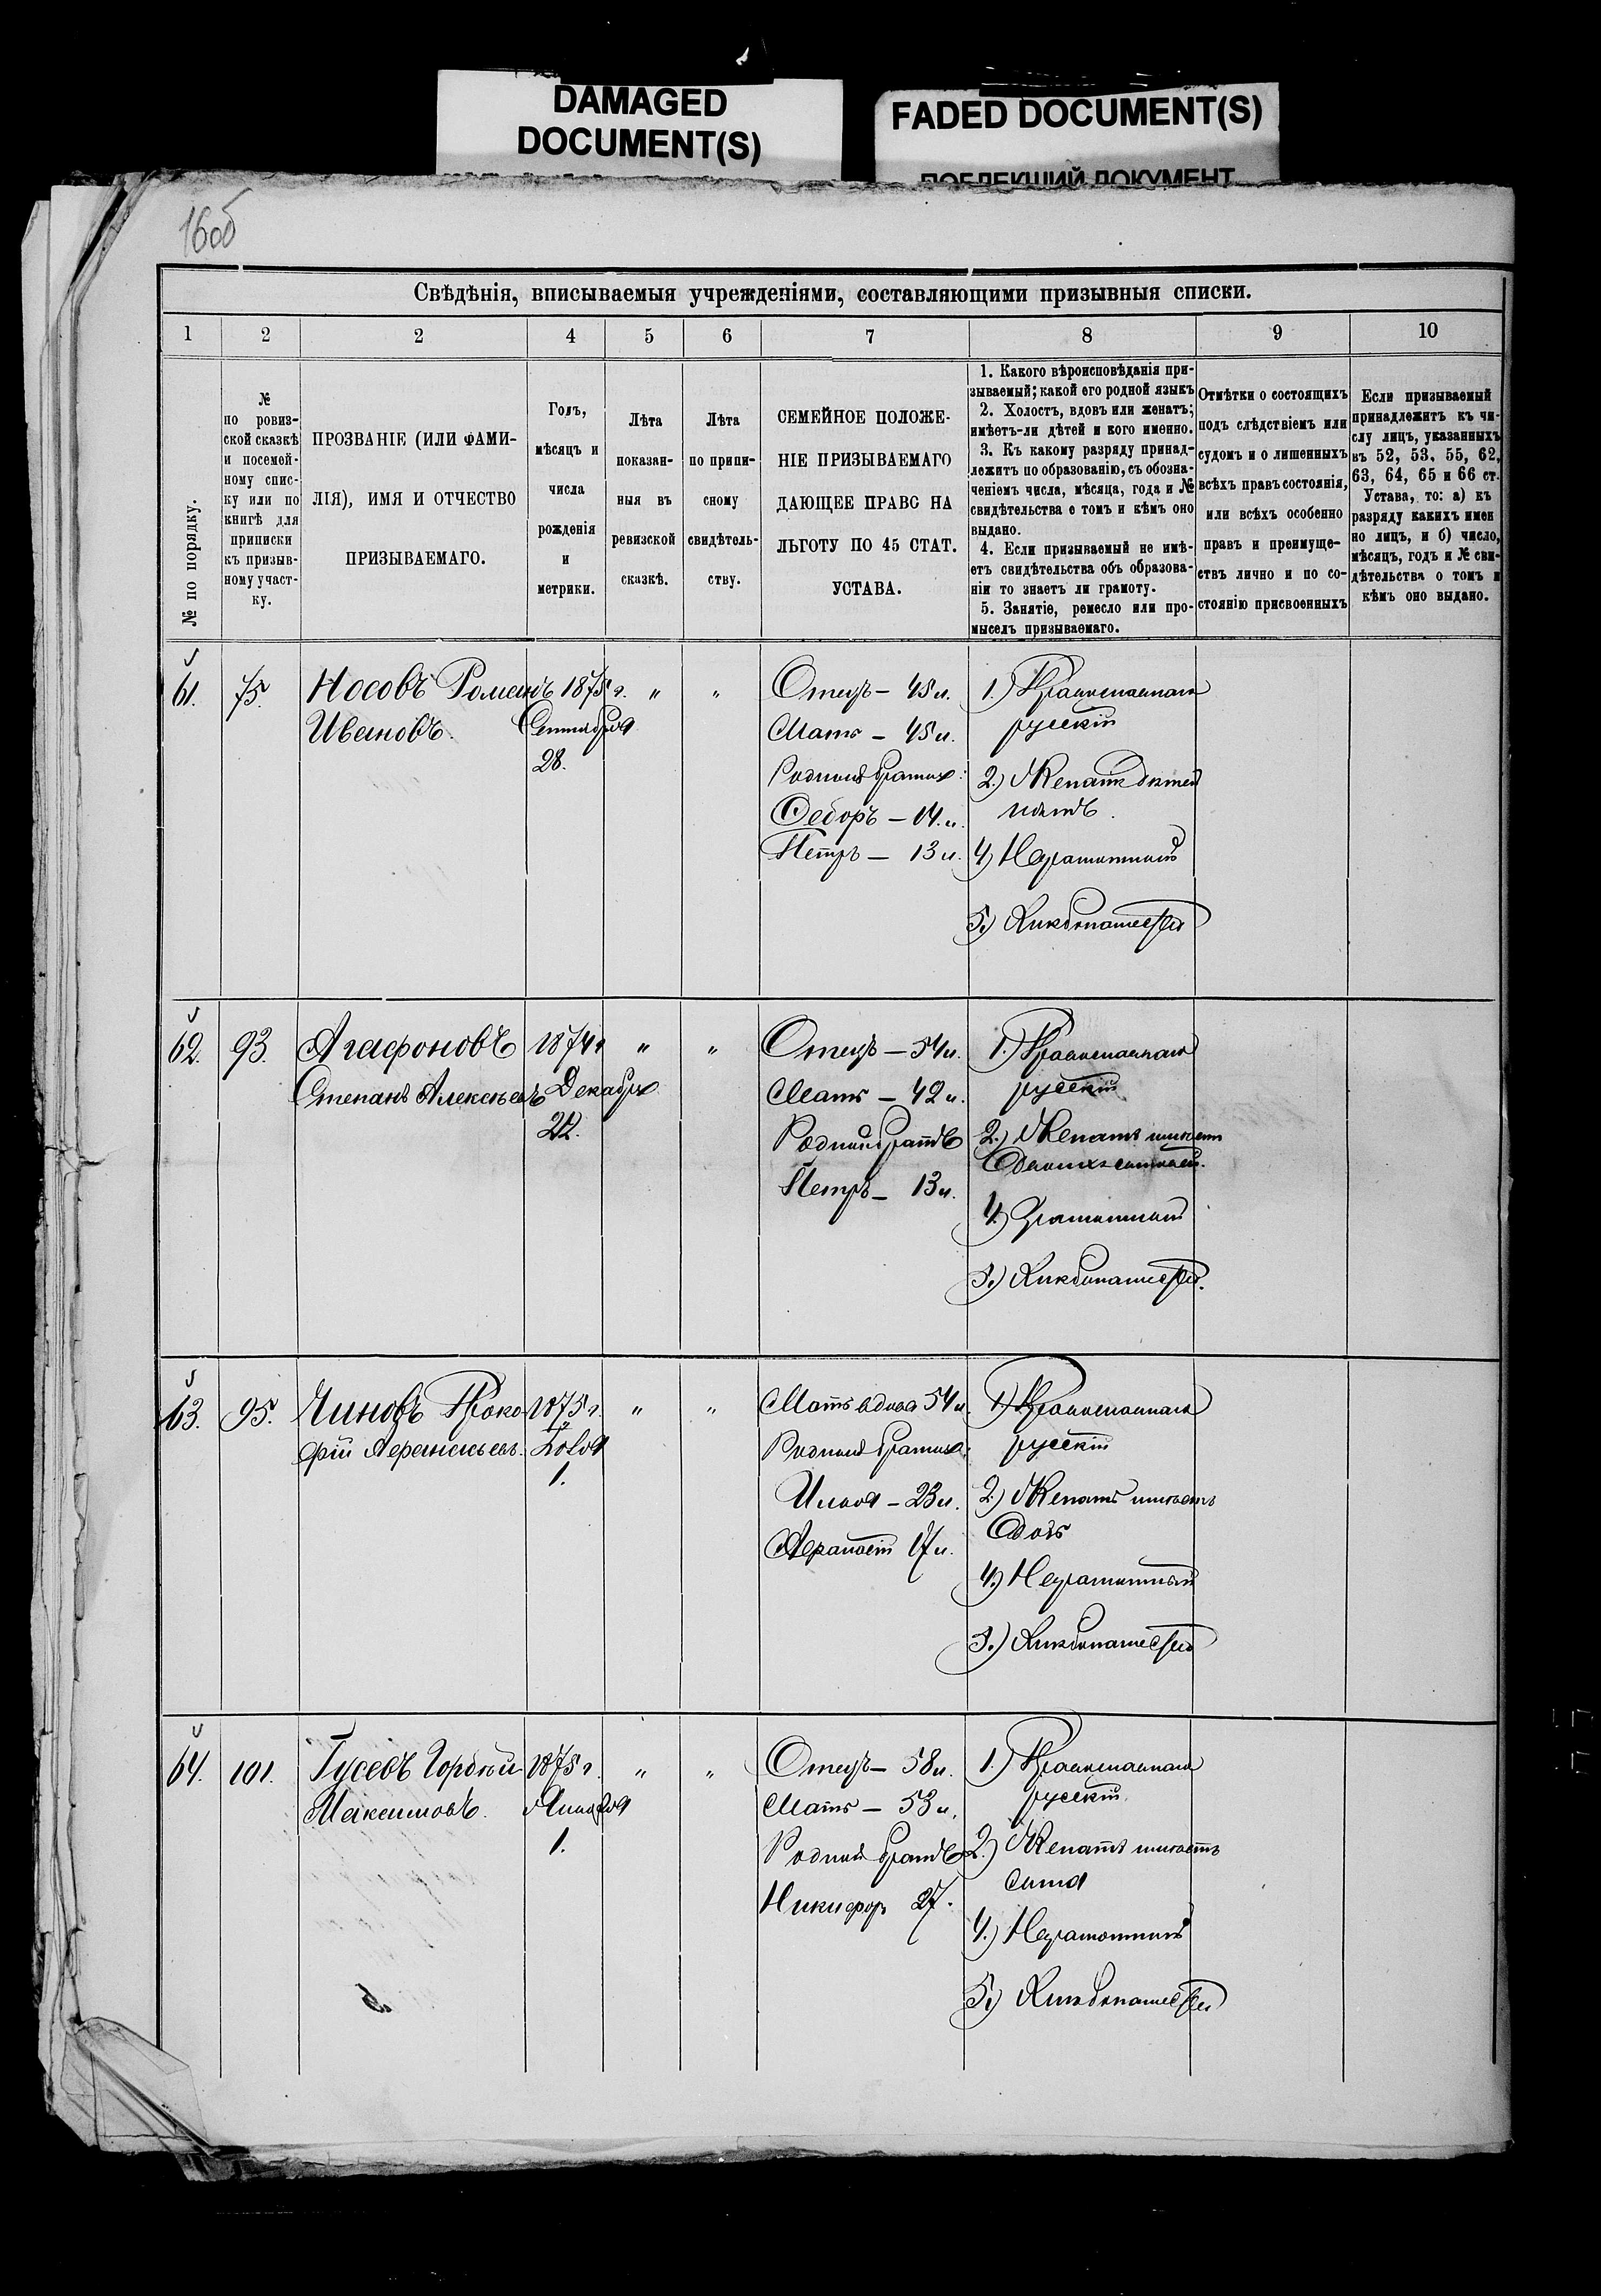 DAMAGED
DOCUMENT(S)
FADED DOCUMENT(S)
ПОБЛЕКШИЙ ДОКУМЕНТ
16об
Свѣдѣнія, вписываемыя учрежденіями, составляющими призывныя списки.
1 2 2 4 5 6 7 8 9 10
№ по порядку.
№
по ровиз-
ской сказкѣ
и посемей-
ному спис-
ку или по
книгѣ для
приписки
къ призыв-
ному участ-
ку.
ПРОЗВАНІЕ (ИЛИ ФАМИ-
ЛІЯ), ИМЯ И ОТЧЕСТВО
ПРИЗЫВАЕМАГО.
Годъ,
мѣсяцъ и
числа
рожденія
и
метрики.
Лѣта
показан-
ныя въ
ревизской
сказкѣ.
Лѣта
по припи-
сному
свидѣтель-
ству.
СЕМЕЙНОЕ ПОЛОЖЕ-
НІЕ ПРИЗЫВАЕМАГО
ДАЮЩЕЕ ПРАВО НА
ЛЬГОТУ ПО 45 СТАТ.
УСТАВА.
1. Какого вѣроисповѣданія при-
зываемый; какой его родной языкъ
2. Холостъ, вдовъ или женатъ;
имѣетъ-ли дѣтей и кого именно.
3. Къ какому разряду принад-
лежитъ по образованію, съ обозна-
ченіемъ числа, мѣсяца, года и №
свидѣтельства о томъ и кѣмъ оно
выдано.
4. Если призываемый не имѣ-
етъ свидѣтельства объ образова-
ніи то знаетъ ли грамоту.
5. Занятіе, ремесло или про-
мыселъ призываемаго.
Отмѣтки о состоящихъ
подъ слѣдствіемъ или
судомъ и о лишенныхъ
всѣхъ правъ состоянія,
или всѣхъ особенно
правъ и преимуще-
ствъ лично и по со-
стоянію присвоенныхъ
Если призываемый
принадлежитъ къ чи-
слу лицъ, указанныхъ
въ 52, 53, 55, 62,
63, 64, 65 и 66 ст.
Устава, то: а) къ
разряду какихъ имен
но лицъ, и б) число,
мѣсяцъ, годъ и № сви-
дѣтельства о томъ и
кѣмъ оно выдано.
61.
75.
Носовъ Романъ
Ивановъ.
1875 г.
Сентября
28.
" "
Отецъ — 45 л.
Мать — 45 л.
Родныхъ братьевъ:
Федоръ — 14 л.
Петръ — 13 л.
1.) Православнаго
русскій
2.) Женатъ дѣтей
нѣтъ.
4.) Неграмотный
5.) Хлѣбопашество
62.
93.
Агафоновъ
Степанъ Алексѣевъ
1874 г
Декабря
22.
" "
Отецъ — 54 л.
Мать — 42 л.
Родной братъ
Петръ — 13 л.
1.) Православнаго
русскій
2.) Женатъ имѣетъ
4.) Грамотный
5.) Хлѣбопашество.
63.
95.
Чиновъ Проко-
фій Аѳанасьевъ.
1875 г.
Іюля
1.
" "
Мать вдова 54 л.
Родныхъ братьевъ:
Илья — 23 л.
17 л.
1.) Православнаго
русскій
2.) Женатъ имѣетъ
дочь
4.) Неграмотный
5.) Хлѣбопашество
64.
101.
Гусевъ Гордѣй
Максимовъ.
1875 г.
Января
1.
" "
Отецъ — 58 л.
Мать — 53 л.
Родной братъ
Никифоръ 27.
1.) Православнаго
русскій
2.) Женатъ имѣетъ
сына
4.) Неграмотный
5.) Хлѣбопашество